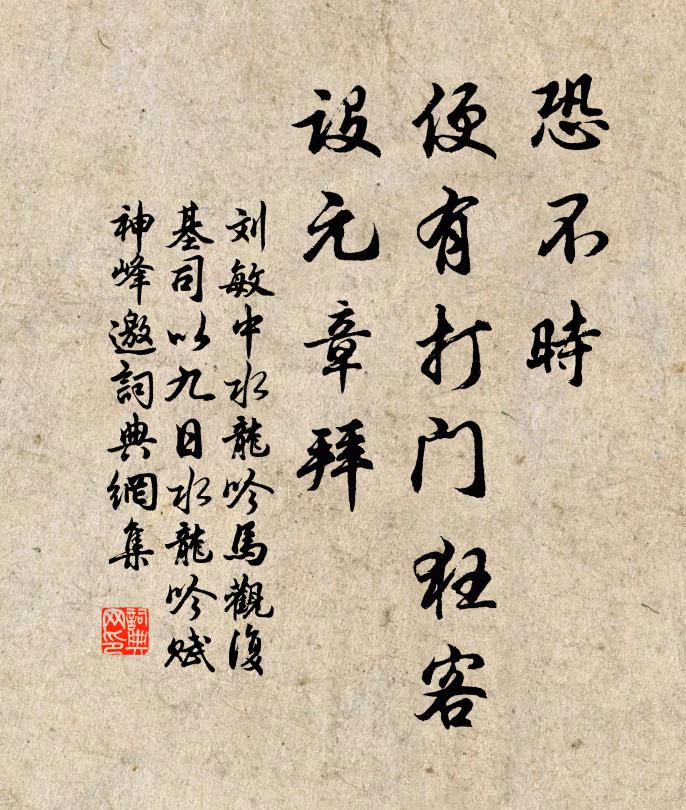 恐不時
便有打门狂客
設元章拜
刘敏中水龍吟馬觀復
基司以九日水龍吟赋
神峰邀詞典網集
詞典
网印